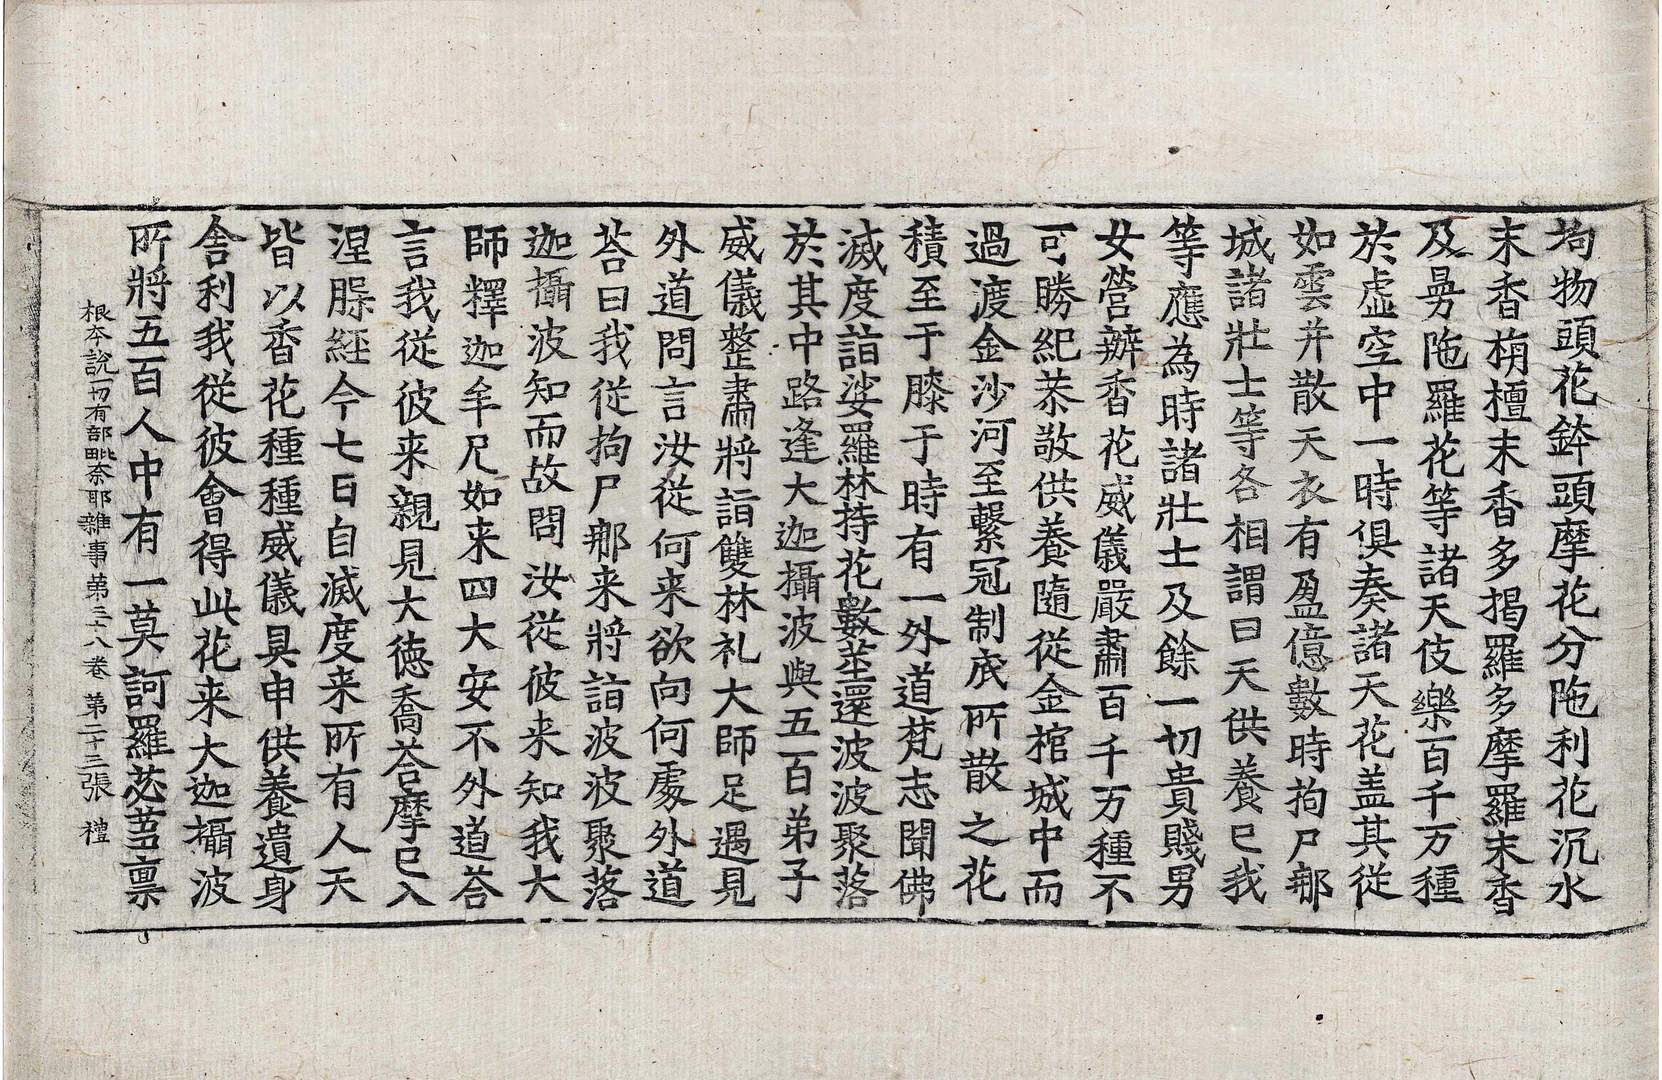 拘物頭花鉢頭摩花分陁利花沉水
末香栴檀末香多揭羅多摩羅末香
及曼陁羅花等諸天伎樂百千万種
於虛空中一時俱奏諸天花盖其從
如雲并散天衣有盈億數時拘尸郍
城諸壯士等各相謂曰天供養已我
等應為時諸壯士及餘一切貴賤男
女營辦香花威儀嚴肅百千万種不
可勝紀恭敬供養隨從金棺城中而
過渡金沙河至繫冠制底所散之花
積至于膝于時有一外道梵志聞佛
滅度詣娑羅林持花數莖還波波聚落
於其中路逢大迦攝波與五百弟子
威儀整肅將詣雙林礼大師足遇見
外道問言汝從何来欲向何處外道
荅曰我從拘尸郍来將詣波波聚落
迦攝波知而故問汝從彼来知我大
師釋迦牟尼如来四大安不外道荅
言我從彼来親見大德喬荅摩已入
涅槃經今七日自滅度来所有人天
皆以香花種種威儀具申供養遺身
舍利我從彼會得此花来大迦攝波
所將五百人中有一莫訶羅苾芻禀
根本說一切有部毗奈耶雜事第三十八卷 第二十三張 禮